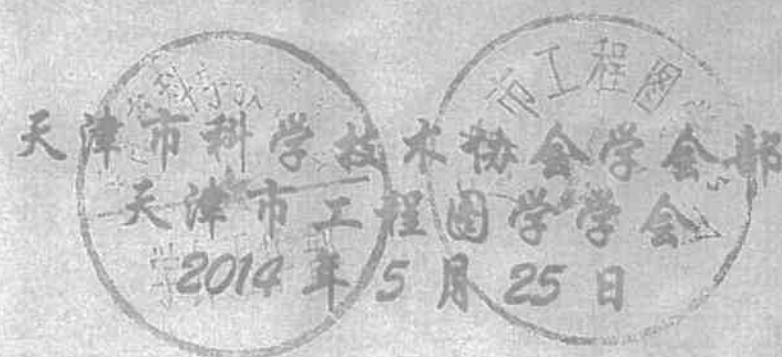 天津市科学技术协会学会部
天津市工程图学学会
2014年5月25日
市工程图